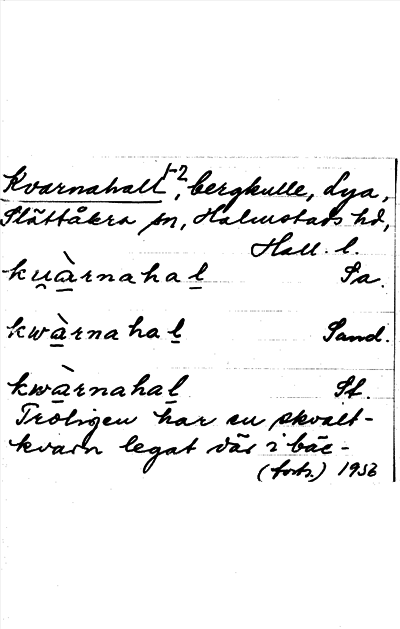 Kvarnahall 1-2, bergkulle, Lya,
Slättåkra sn, Halmstads hd,
Hall. l.
ku̯àrnahal Sa.
kwàrnahal Sand.
kwàrnahal St.
Troligen har en skvalt-
kvarn legat där i bäc-
(forts.) 1936